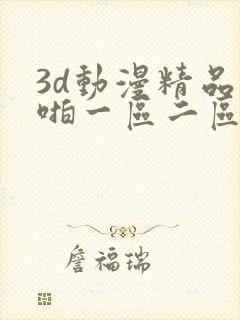 3d動漫精品
啪一區二區
詹福瑞